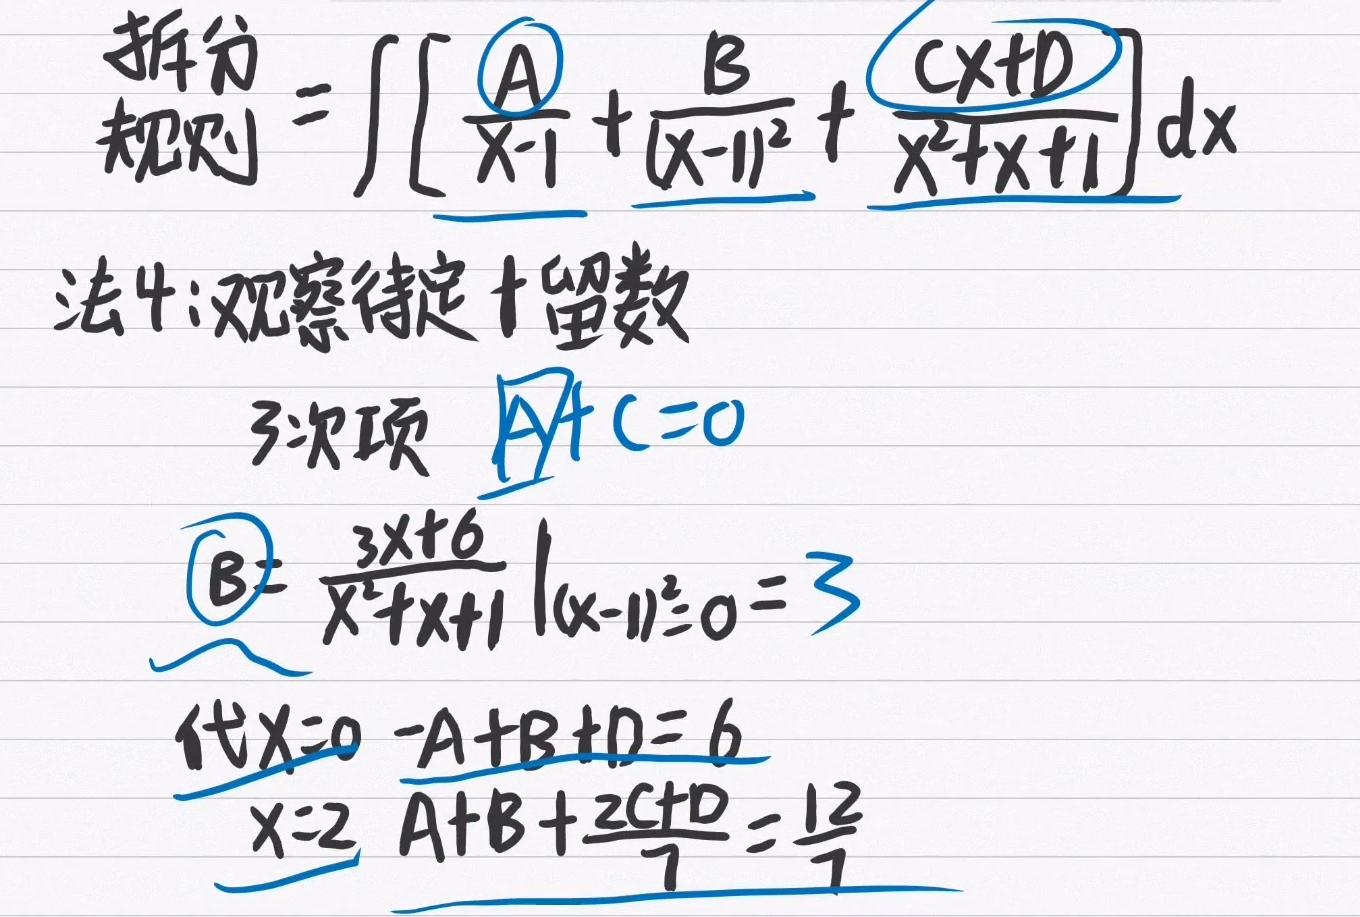 拆分规则 = ∫[A/(x-1) + B/(x-1)² + (Cx+D)/(x²+x+1)]dx
法4:观察待定+留数
3次项 A+C=0
B= (3x+6)/(x²+x+1) |(x-1)²=0 = 3
代x=0 -A+B+D=6
x=2 A+B+(2C+D)/7=12/7